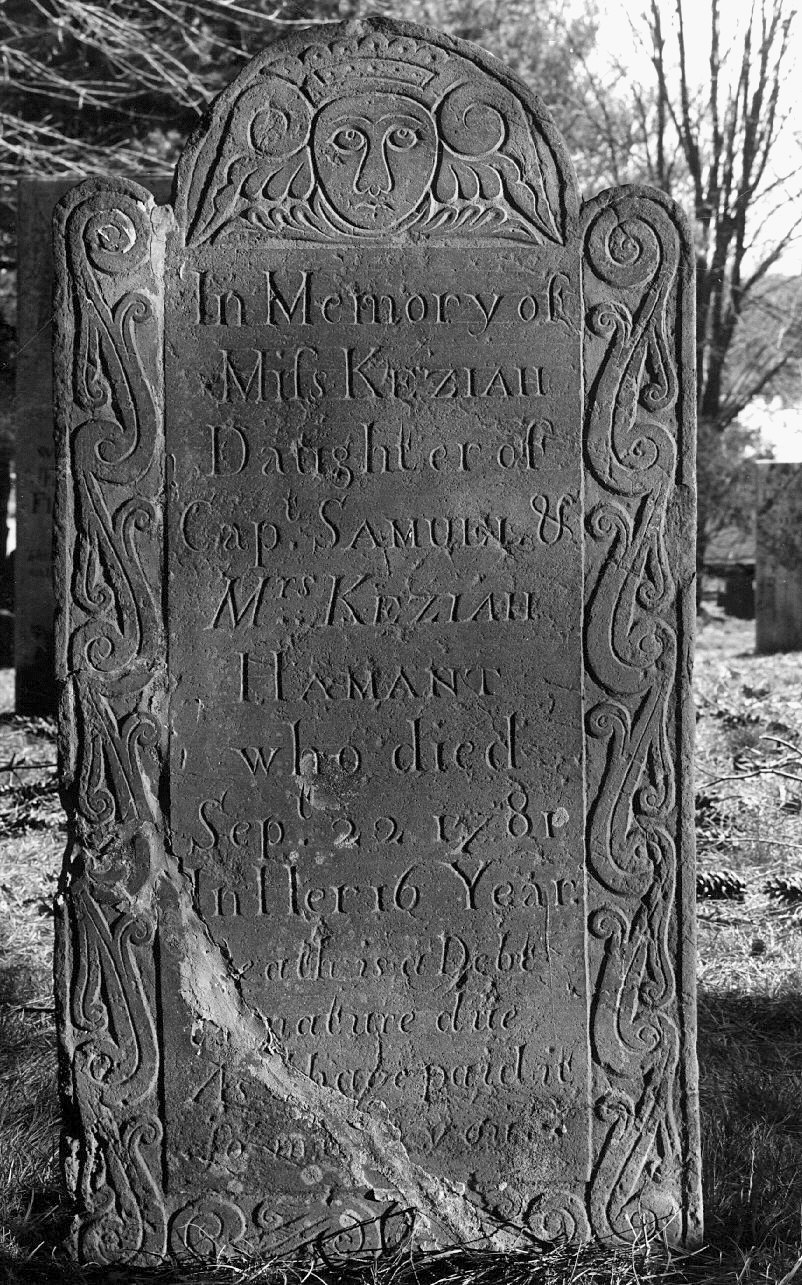 In Memory of
Miſs KEZIAH
Daughter of
Capt. SAMUEL &
Mrs KEZIAH
HAMANT
who died
Sept. 22 1781
In Her 16 Year.
eath is a Debt
nature due
As have paid it
so must you